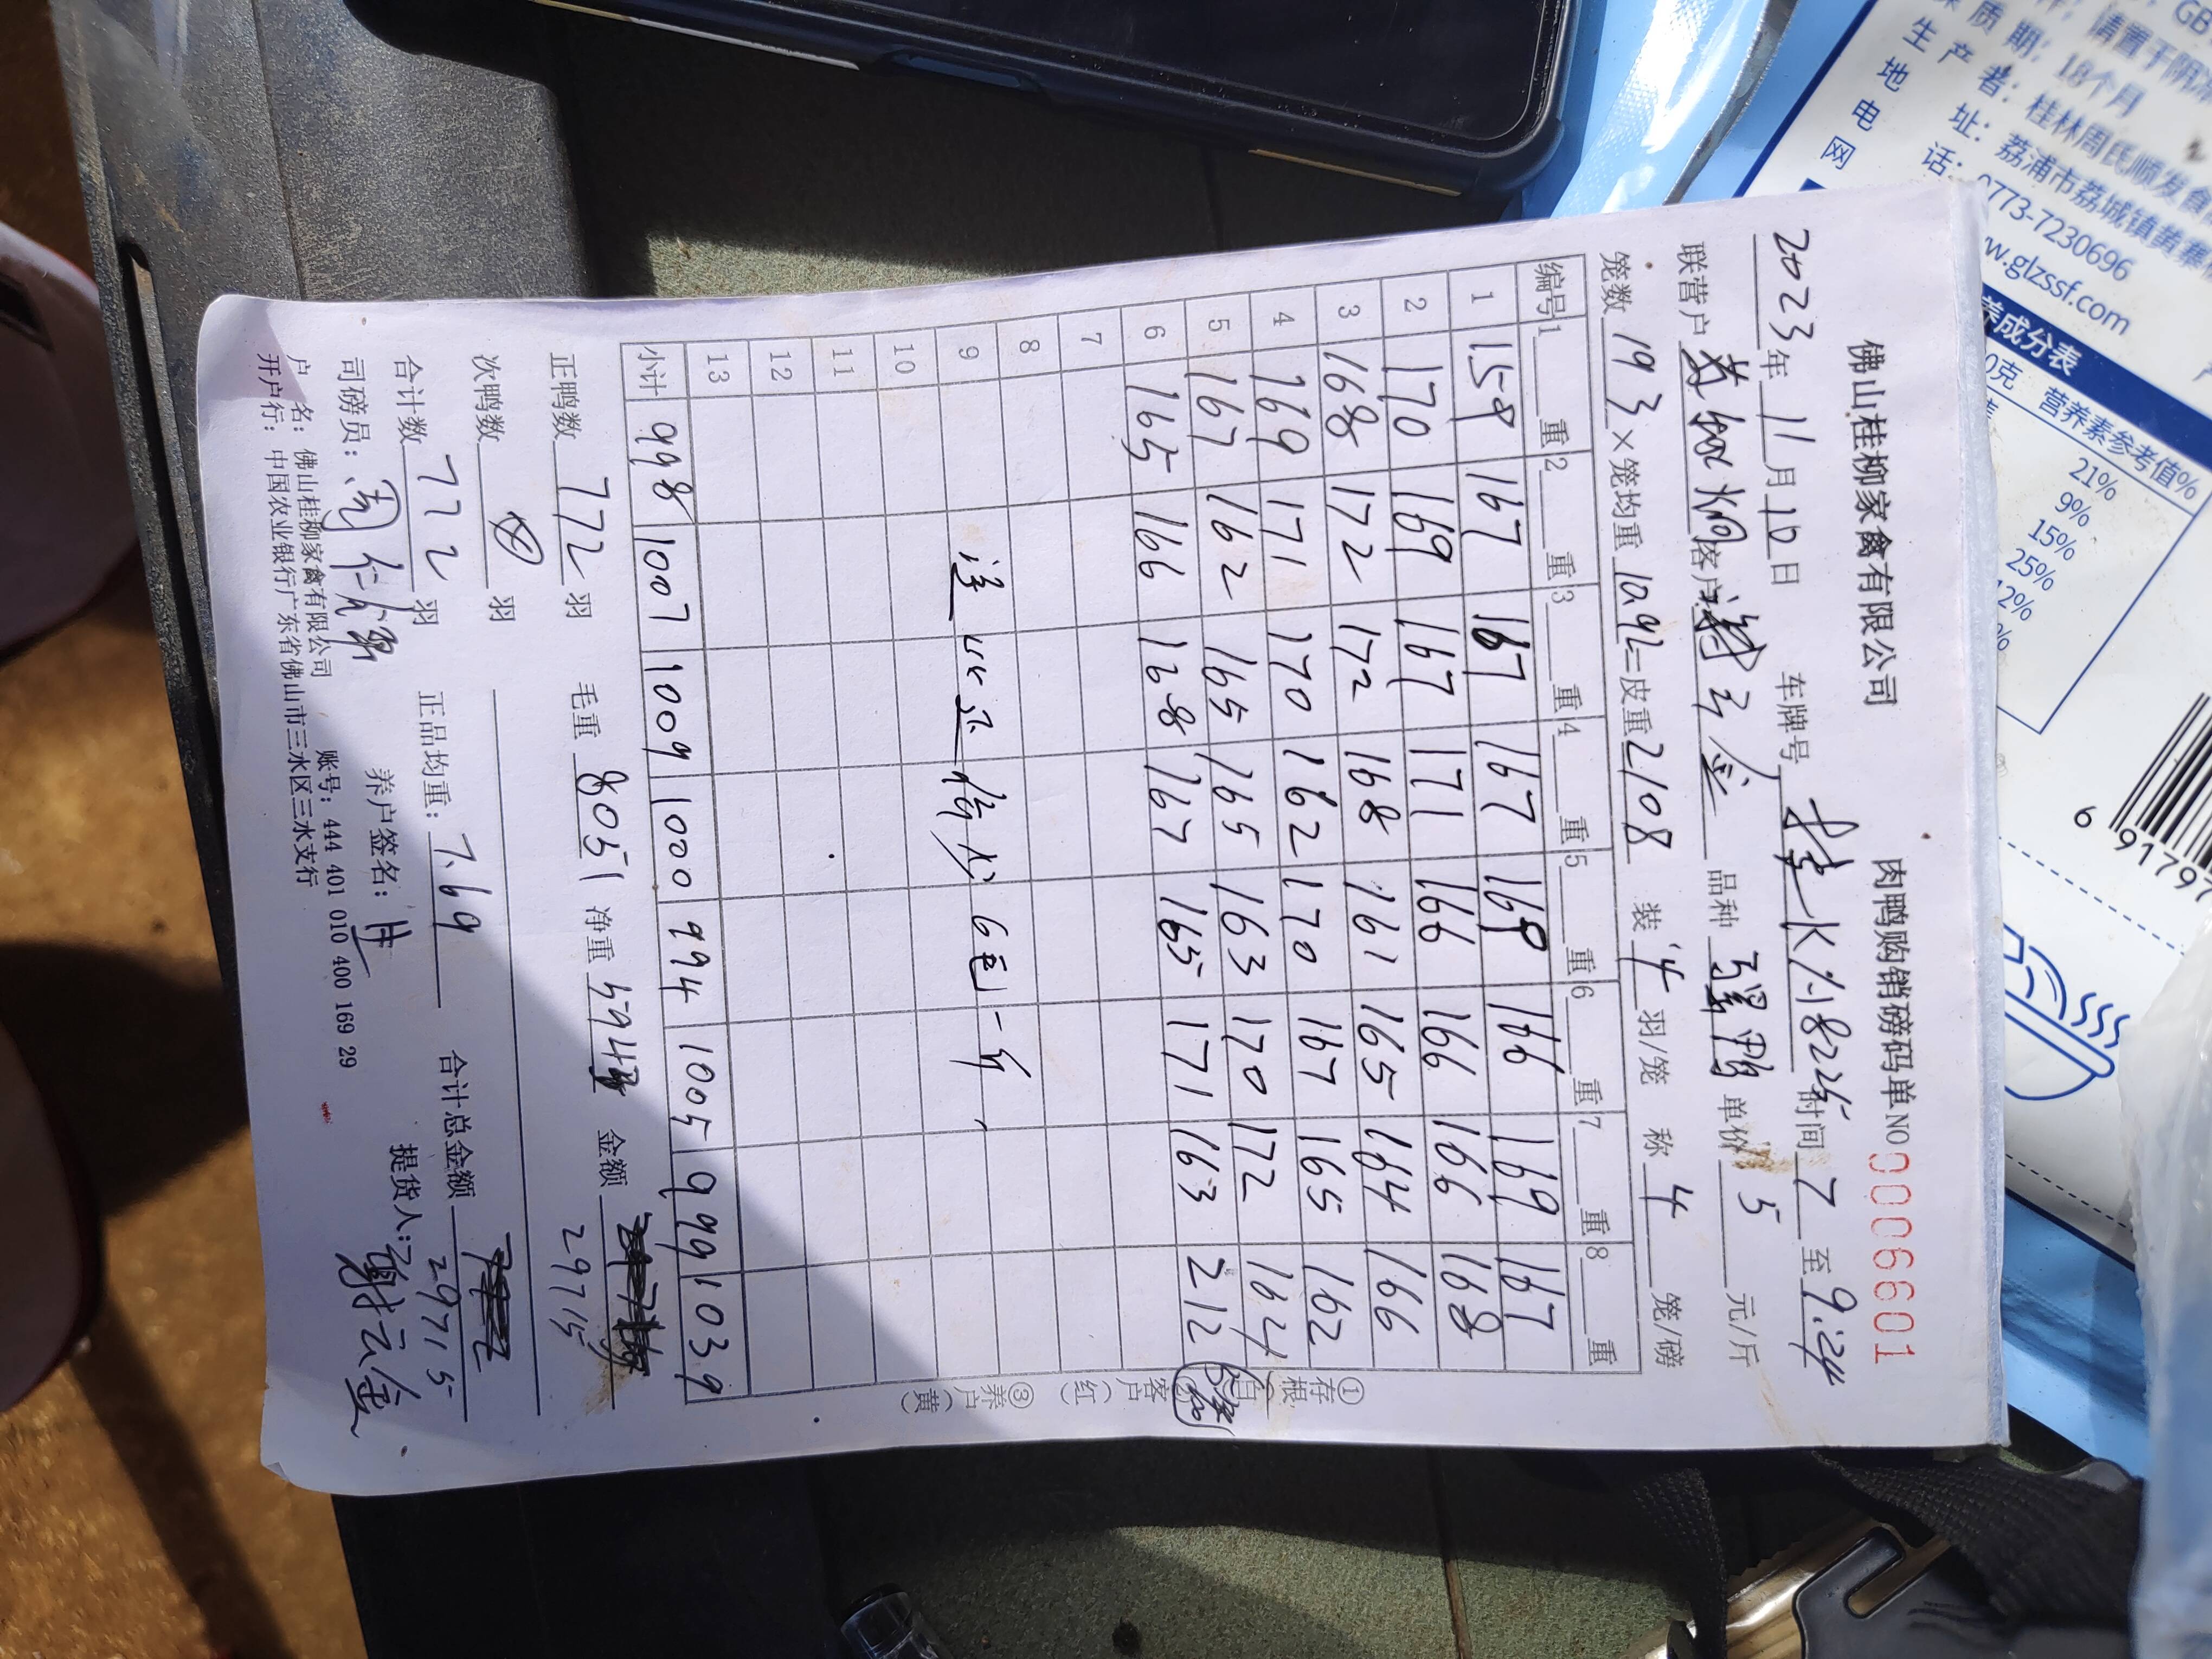 佛山桂柳家禽有限公司 肉鸭购销磅码单 NO 0006601
2023年11月10日 车牌号 桂K18225 时间 7 至 9:24
联营户 客户 谢云金 品种 鸭 单价 5 元/斤
笼数 193 × 笼均重 10.92 = 皮重 2108 装 4 羽/笼 称 4 笼/磅
编号 1 重 2 重 3 重 4 重 5 重 6 重 7 重 8 重
1 158 167 167 167 169 166 169 167
2 170 169 167 171 166 166 166 168
3 168 172 172 168 161 165 164 166
4 169 171 170 162 170 167 165 162
5 167 162 165 165 163 170 172 164
6 165 166 168 167 165 171 163 212
7
8
9 6毛一斤
10
11
12
13
小计 998 1007 1009 1000 994 1005 999 1039
①存根(白) 客户(红) ③养户(黄)
正鸭数 772 羽 毛重 8051 净重 5943 金额 29715
次鸭数 羽
合计数 772 羽 正品均重: 7.69 合计总金额 29715
司磅员: 周 养户签名: 提货人: 谢云金
户 名: 佛山桂柳家禽有限公司 账号: 444 401 010 400 169 29
开户行: 中国农业银行广东省佛山市三水区三水支行
GB
质期: 18个月
生产者: 桂林周氏顺发食
地 址: 荔浦市荔城镇黄寨
电 话: 0773-7230696
网 w.glzssf.com
养成分表
0克 营养素参考值%
21%
9%
15%
25%
2%
%
6 91797